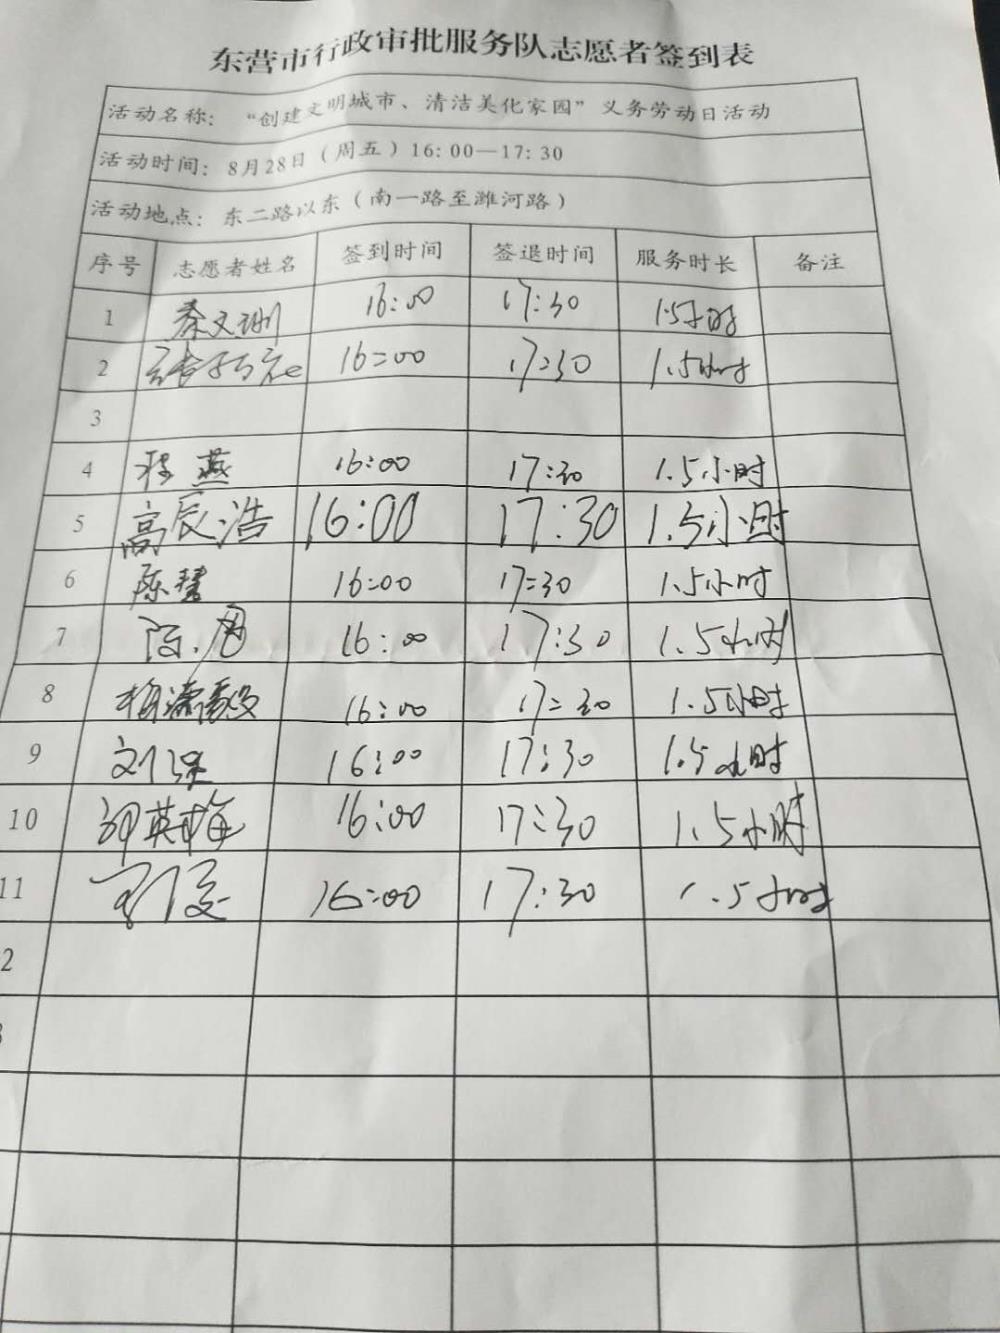 东营市行政审批服务队志愿者签到表
活动名称：“创建文明城市、清洁美化家园”义务劳动日活动
活动时间：8月28日（周五）16:00—17:30
活动地点：东二路以东（南一路至潍河路）
序号 志愿者姓名 签到时间 签退时间 服务时长 备注
1 秦文 16:00 17:30 1.5小时
2 16:00 17:30 1.5小时
3
4 燕 16:00 17:30 1.5小时
5 高辰浩 16:00 17:30 1.5小时
6 陈慧 16:00 17:30 1.5小时
7 陈勇 16:00 17:30 1.5小时
8 16:00 17:30 1.5小时
9 刘 16:00 17:30 1.5小时
10 英梅 16:00 17:30 1.5小时
11 16:00 17:30 1.5小时
2
3